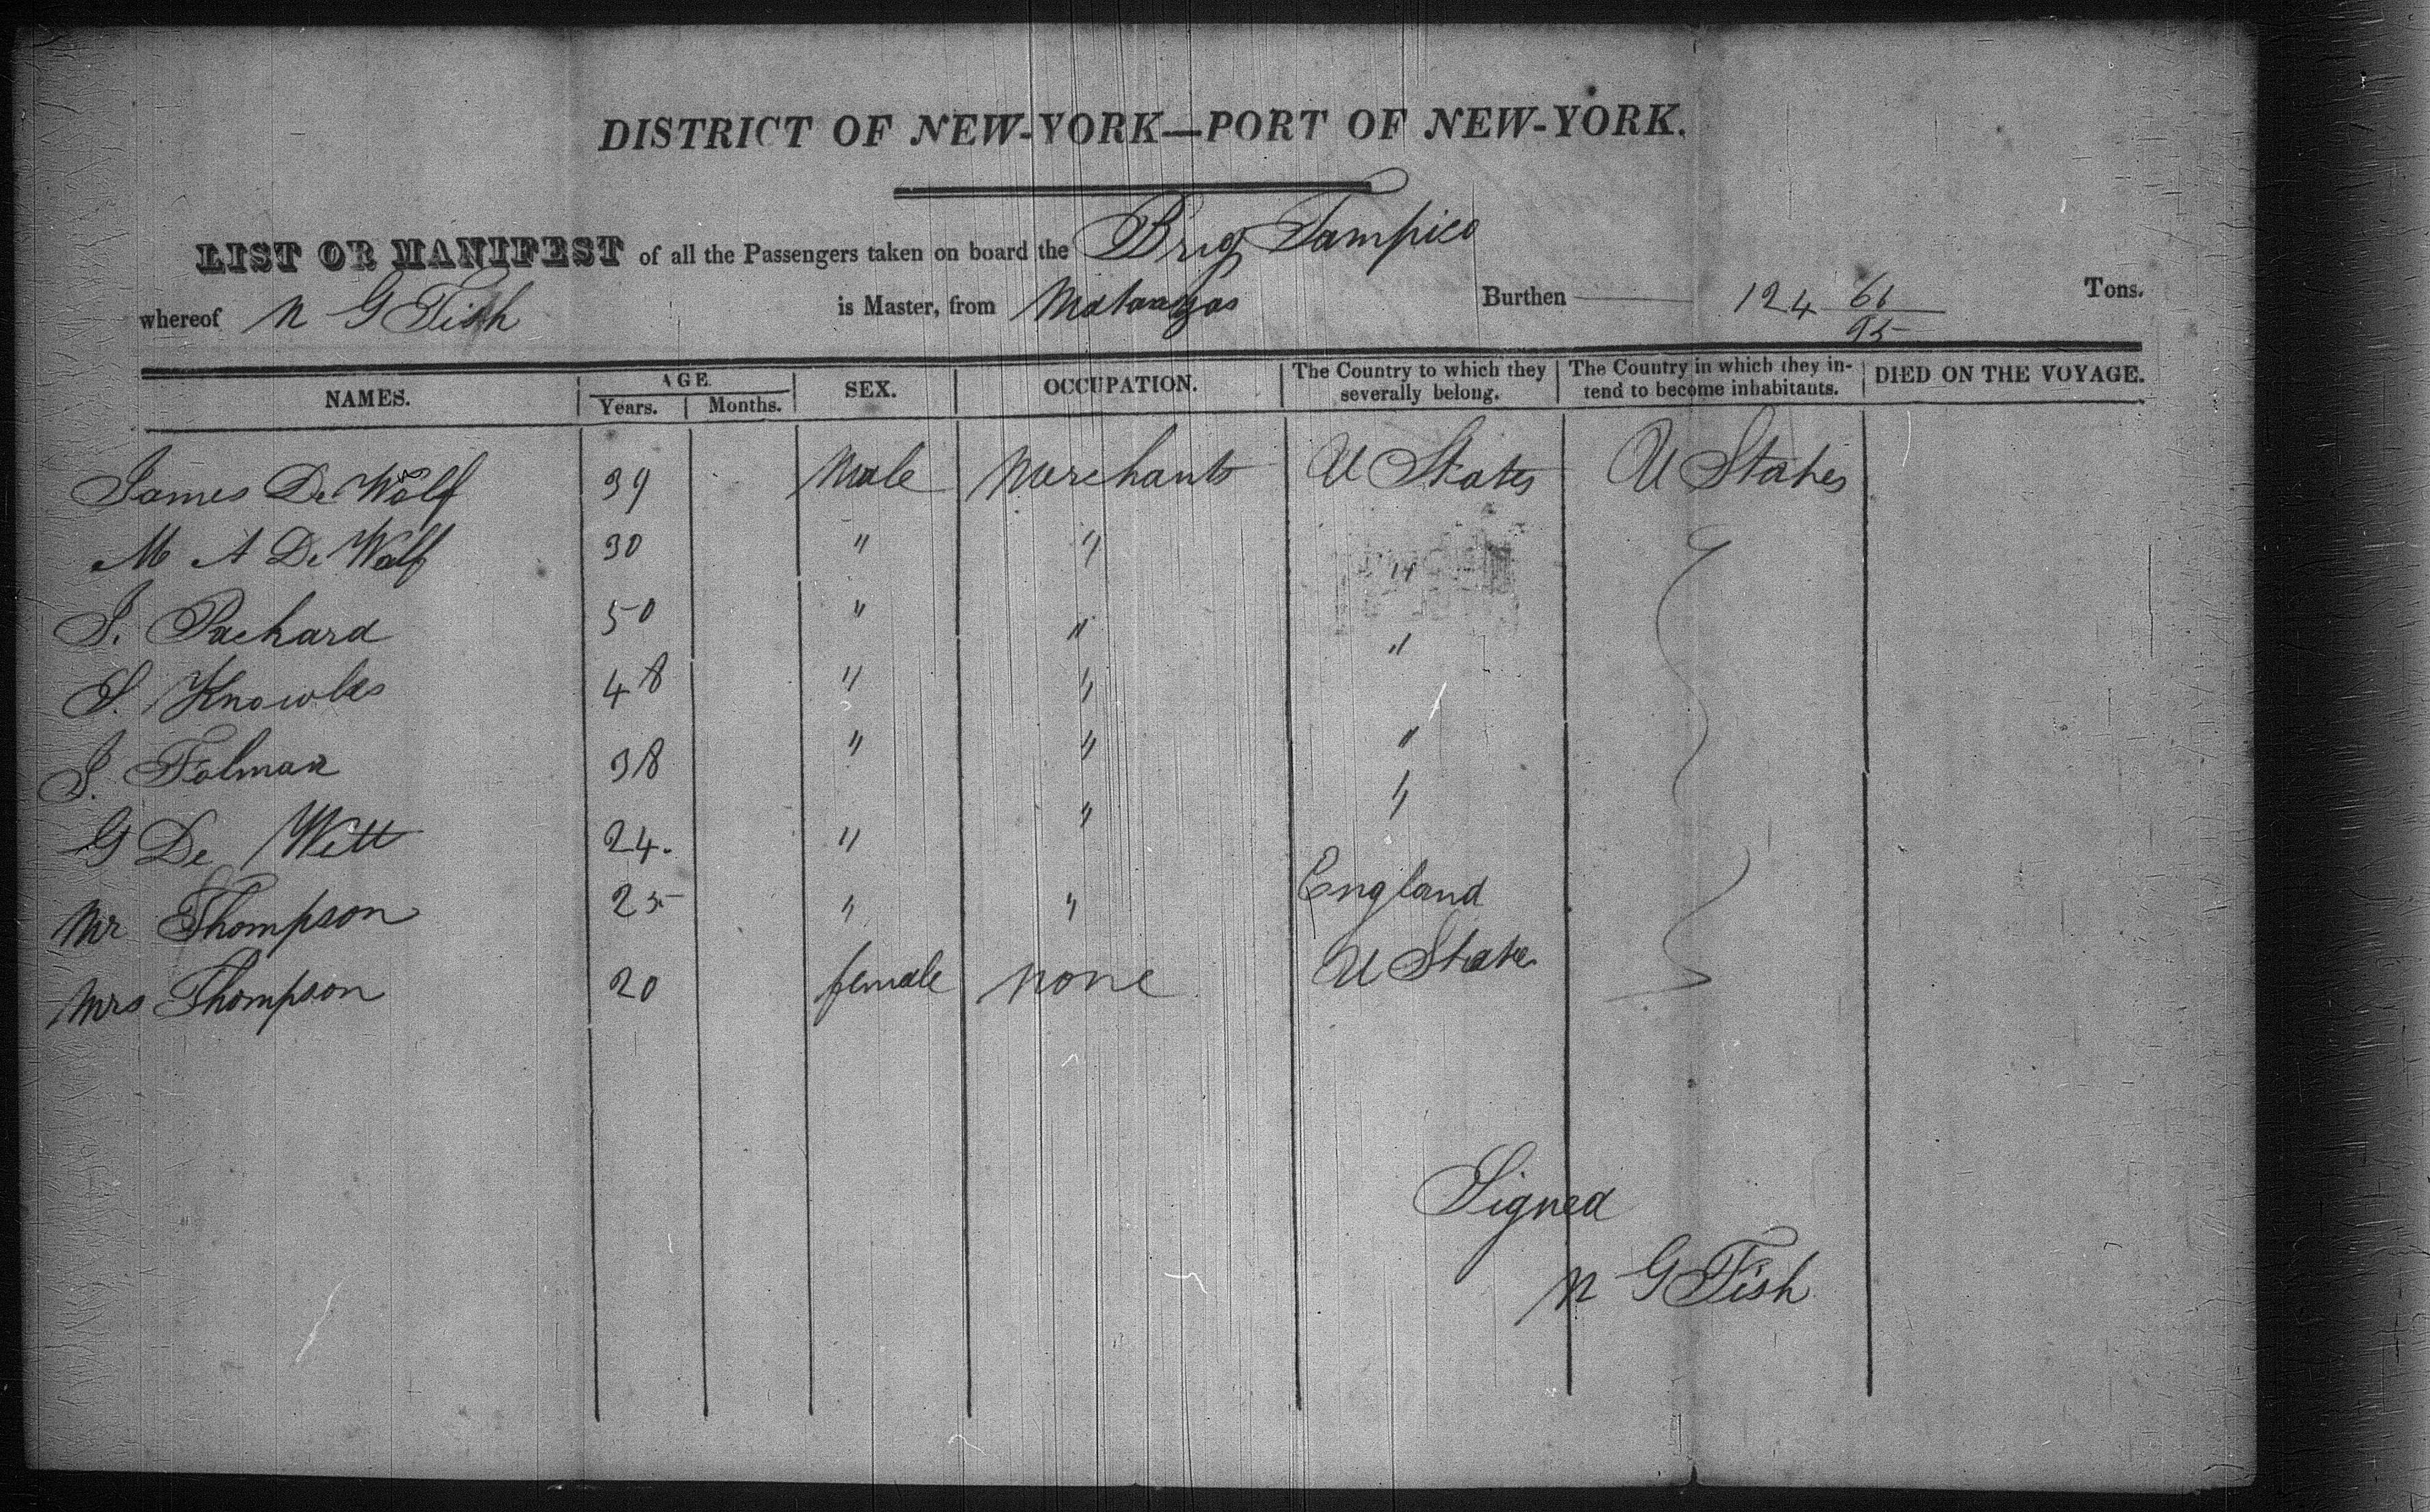 DISTRICT OF NEW-YORK—PORT OF NEW-YORK.
LIST OR MANIFEST of all the Passengers taken on board the Brig Tampico
whereof N G Fish is Master, from Matanzas Burthen 124 61/95 Tons.
NAMES. AGE. Years. Months. SEX. OCCUPATION. The Country to which they severally belong. The Country in which they intend to become inhabitants. DIED ON THE VOYAGE.
James De Wolf 39 Male Merchants U States U States
M A De Wolf 30 " " "
J. Packard 50 " " "
S. Knowles 48 " "
J. Tolman 38 " " "
G De Witt 24. " " "
Mr Thompson 25 " " England
Mrs Thompson 20 female none U State
Signed
N G Fish